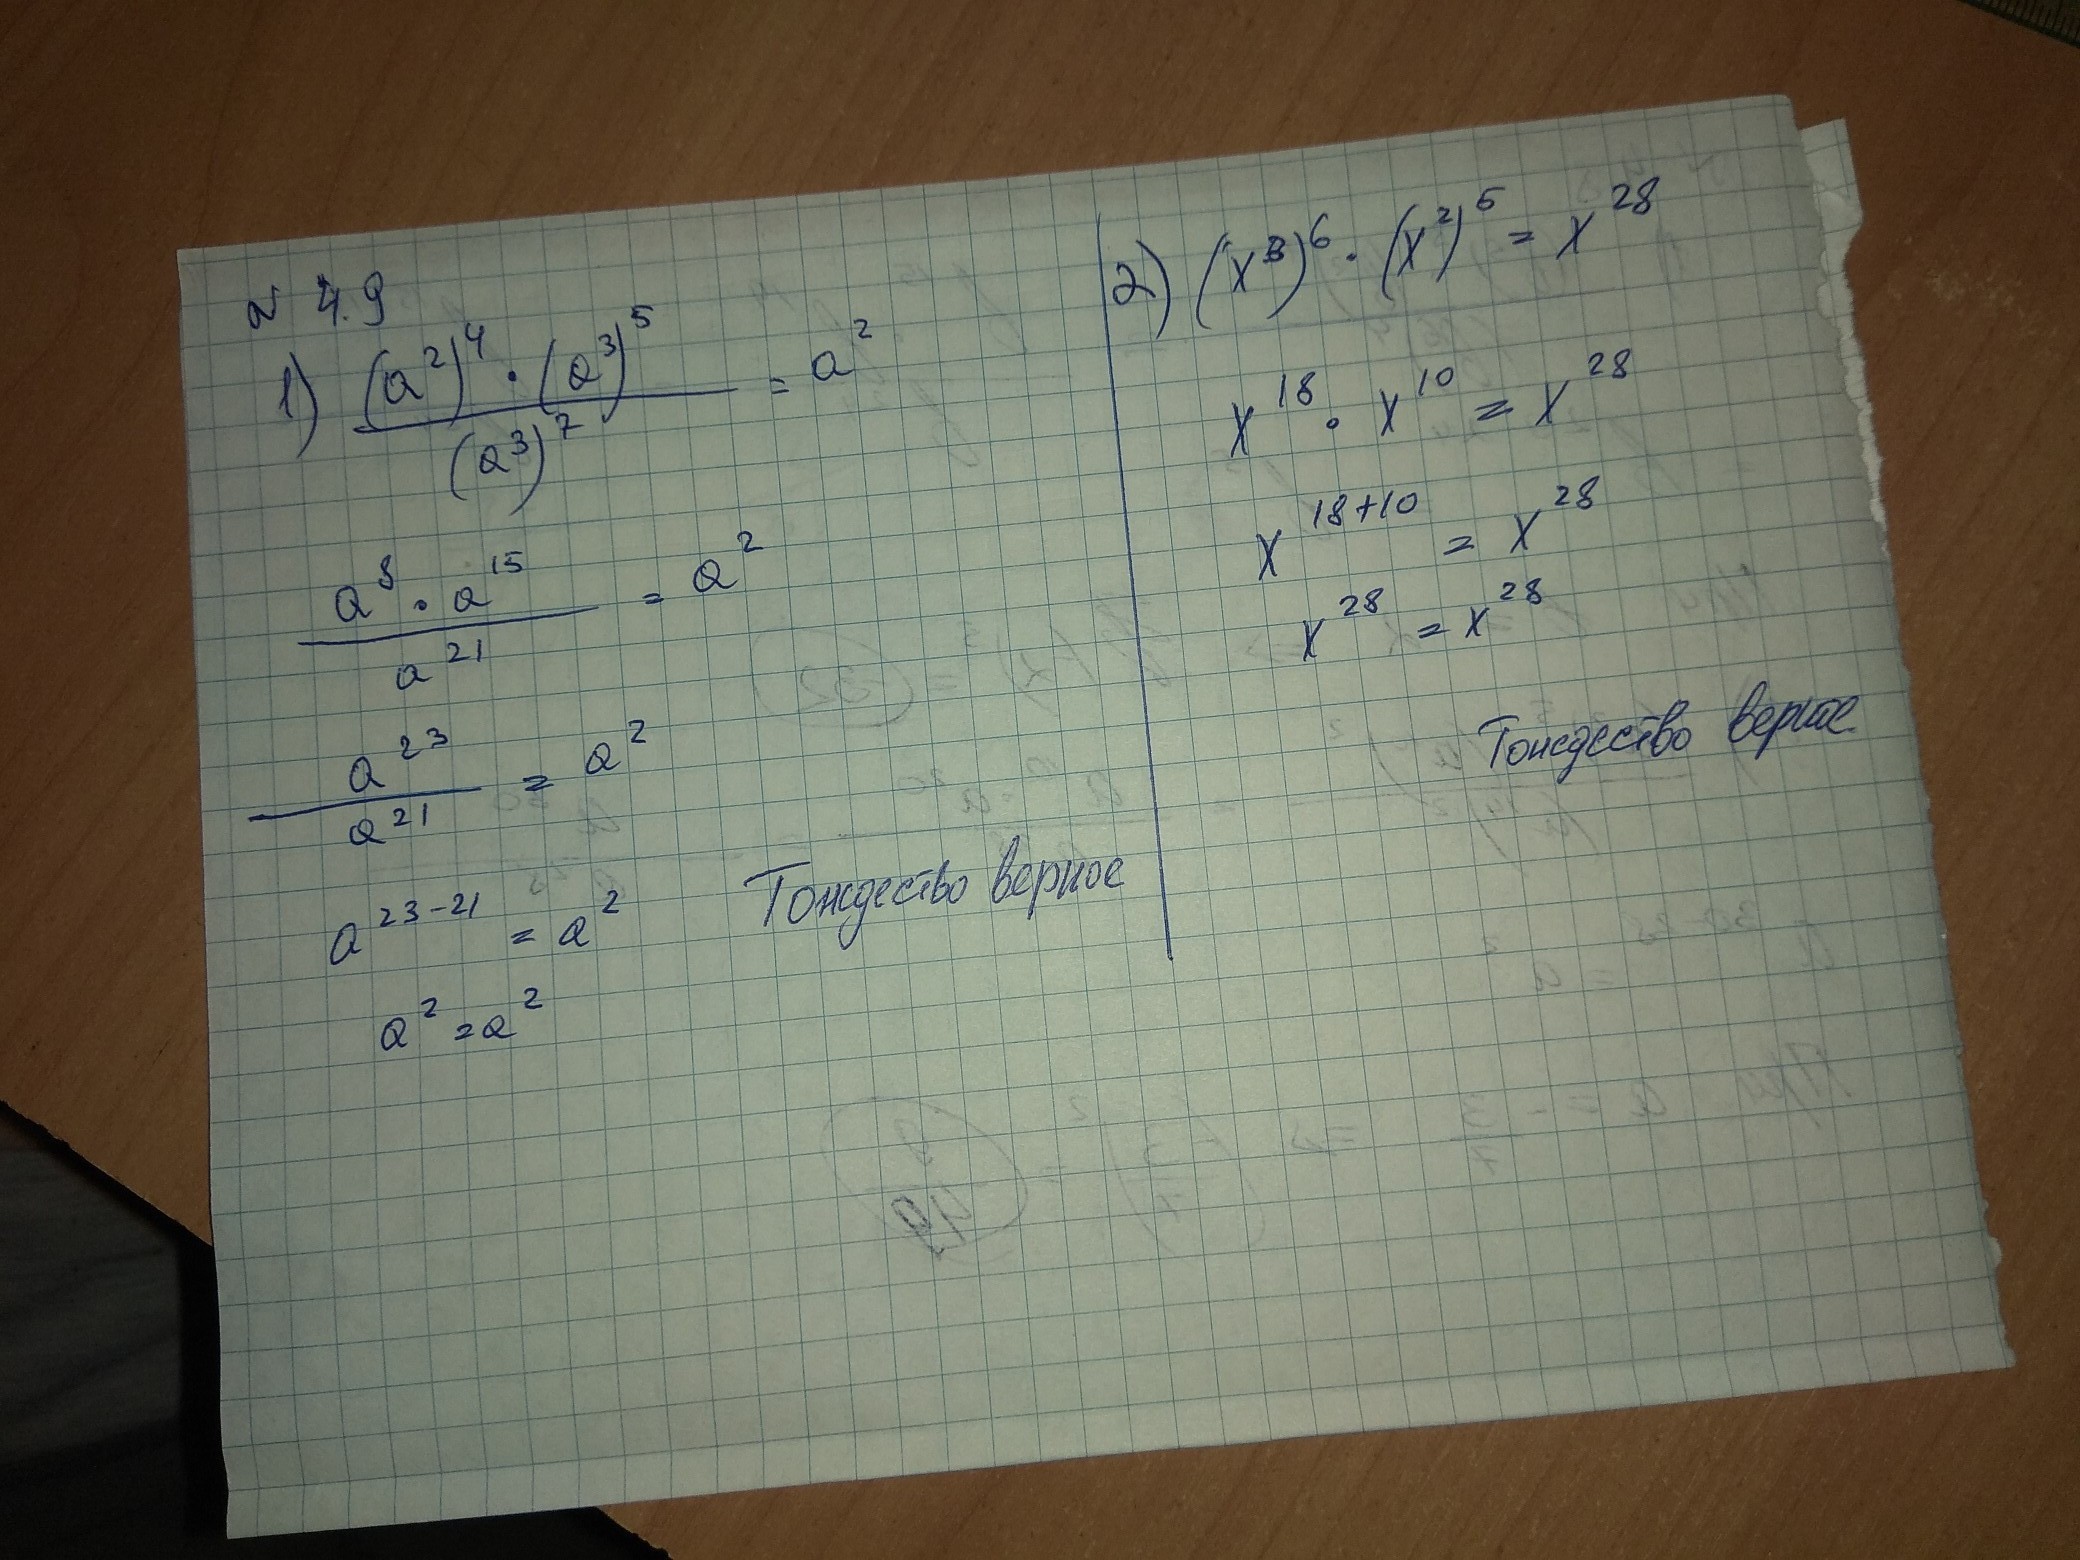 № 4.9
1) ((a²)⁴ · (a³)⁵) / (a³)⁷ = a²
(a⁸ · a¹⁵) / a²¹ = a²
a²³ / a²¹ = a²
a²³⁻²¹ = a²
a² = a²
Тождество верное
2) (x³)⁶ · (x²)⁵ = x²⁸
x¹⁸ · x¹⁰ = x²⁸
x¹⁸⁺¹⁰ = x²⁸
x²⁸ = x²⁸
Тождество верное